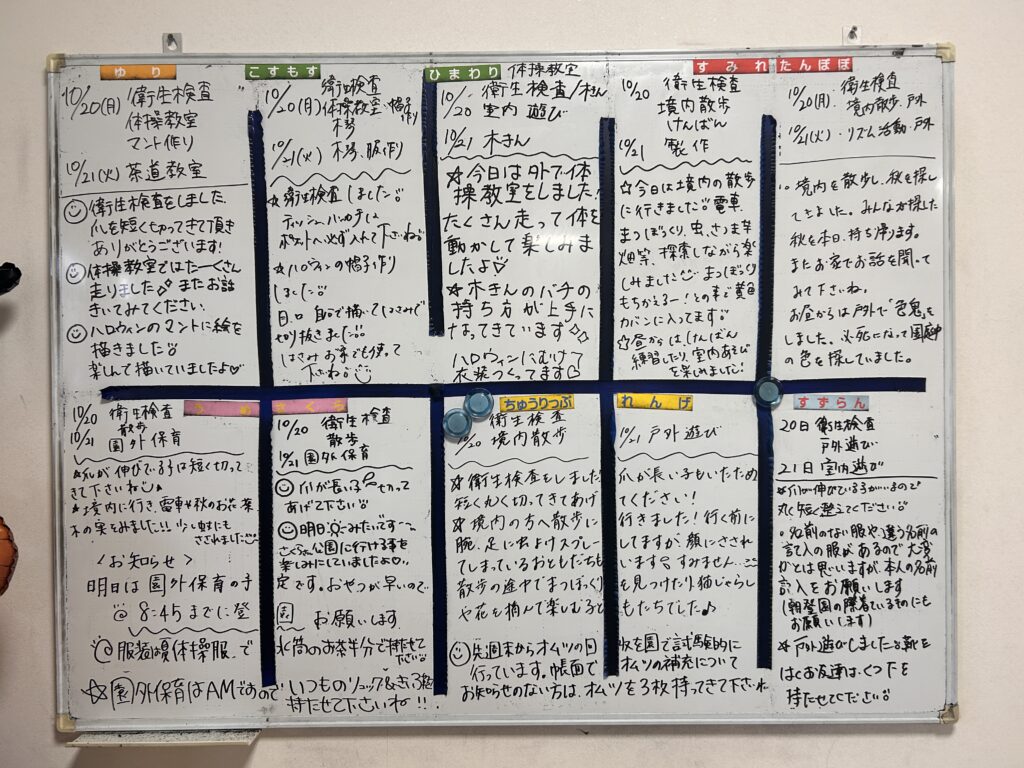 ゆり
10/20(月) 衛生検査
体操教室
マント作り
10/21(火) 茶道教室
衛生検査をしました
爪を短く切ってきて頂き
ありがとうございます!
体操教室ではたーくさん
走りました♪ またお話
きいてみてください。
ハロウィンのマントに絵を
描きました
楽しんで描いていましたよ♡
こすもす
衛生検査
10/20(月)体操教室・帽子作り
木琴
10/21(火) 木琴、服作り
★衛生検査しました
ティッシュ、ハンカチは
ポケットへ必ず入れて下さいね
★ハロウィンの帽子作り
しました
目、口 自分で描いてはさみで
切り抜きました
はさみお家でも使って
下さいね
ひまわり
体操教室
10/20 衛生検査/木きん
室内遊び
10/21 木きん
☆今日は外で体
操教室をしました!
たくさん走って体を
動かして楽しみま
したよ♡
★木きんのバチの
持ち方が上手に
なってきています
ハロウィンにむけて
衣装つくってます
すみれ
10/20 衛生検査
境内散歩
けんばん
10/21 製作
☆今日は境内の散歩
に行きました 電車、
まつぼっくり、虫、さつま芋
畑等、探索しながら楽
しみました まつぼっくり
もちかえるー!との事で黄色
カバンに入ってます
☆昼からはけんばん
練習したり、室内あそび
を楽しみました!
たんぽぽ
衛生検査
10/20(月)・境内散歩、戸外
10/21(火)・リズム活動、戸外
○境内を散歩し、秋を探し
てきました。みんなが探した
秋を本日、持ち帰ります。
またお家でお話を聞いて
みて下さいね。
お昼からは戸外で"色鬼"を
しました。必死になって園庭中
の色を探していました。
うめ
10/20 衛生検査
散歩
10/21 園外保育
★爪が伸びている子は短く切って
きて下さいね
★境内に行き、電車や秋のお花、葉
木の実をみました!! 少し蚊にも
さされました
<お知らせ>
明日は園外保育の予
@ 8:45までに登
@服装は夏体操服、で
☆園外保育はAMですので
さくら
10/20 衛生検査
散歩
10/21 園外保育
爪が長い子 切って
あげて下さい
明日 みたいです〜
さくら公園に行ける事を
楽しみにしていましたよ
定です。おやつが早いので、
園 お願いします
水筒のお茶半分で持たせて
ください
いつものリュック&きいろ帽
持たせて下さいね!!
ちゅうりっぷ
衛生検査
10/20 境内散歩
★衛生検査をしました
短く丸く切ってきてあげ
★境内の方へ散歩に
腕、足に虫よけスプレー
てしまっているおともだちも
散歩の途中でまつぼっくり
や花を摘んで楽しむると
先週末からオムツの回
行っています。帳面で
お知らせのない方は、オムツを3枚持ってきて下さいね
れんげ
10/21 戸外遊び
爪が長い子もいたため
てください!
行きました!行く前に
してますが、顔にさされ
います すみません…
を見つけたり、猫じゃらし
もたちでした♪
収を園で試験的に
オムツの補充について
すずらん
20日 衛生検査
戸外遊び
21日 室内遊び
★爪が伸びている子がいるので
丸く短く整えてください
○名前のない服や、違う名前の
記入の服があるので大変
かとは思いますが、本人の名前
記入をお願いします
(朝登園の際着ているものにも
お願いします)
★戸外遊びしました 靴を
はくお友達は、くつ下を
持たせてください